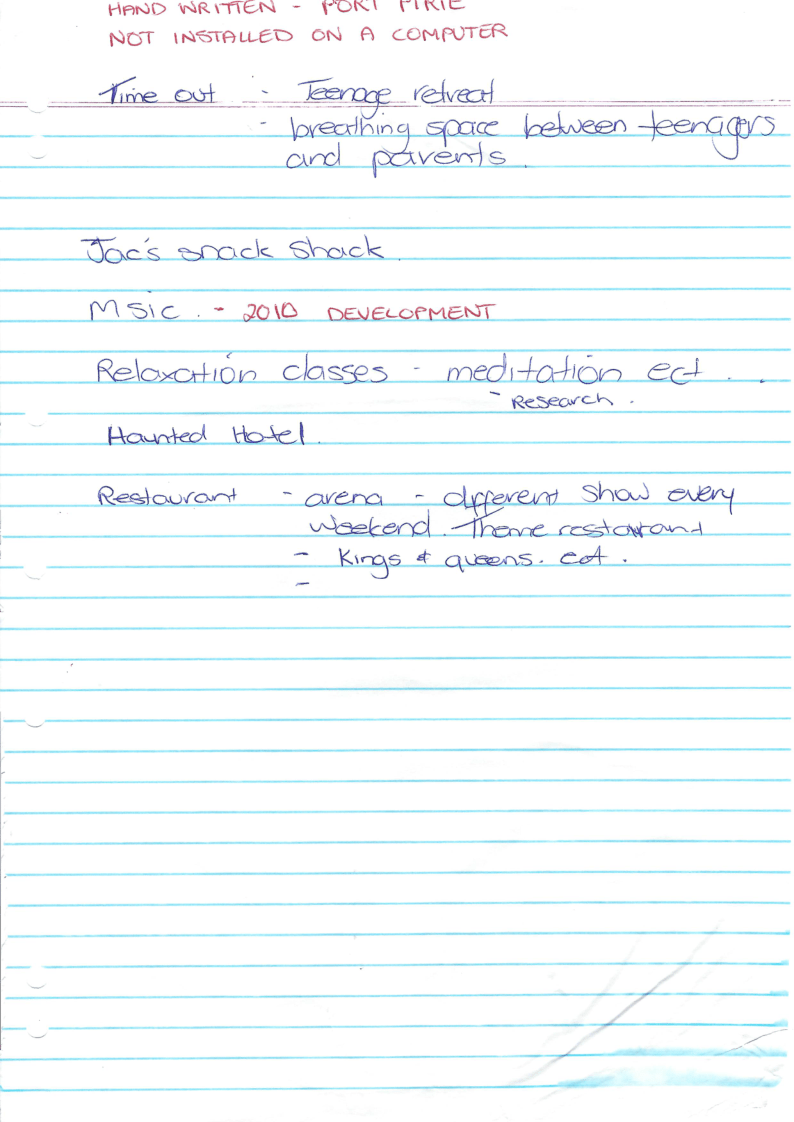 HAND WRITTEN - PORT PIRIE
NOT INSTALLED ON A COMPUTER
Time out - Teenage retreat
- breathing space between teenagers
and parents.
Jac's snack shack.
MSIC. - 2010 DEVELOPMENT
Relaxation classes - meditation ect..
- Research.
Haunted Hotel.
Restaurant - arena - different show every
weekend. Theme restaurant
- Kings & queens. ect.
-